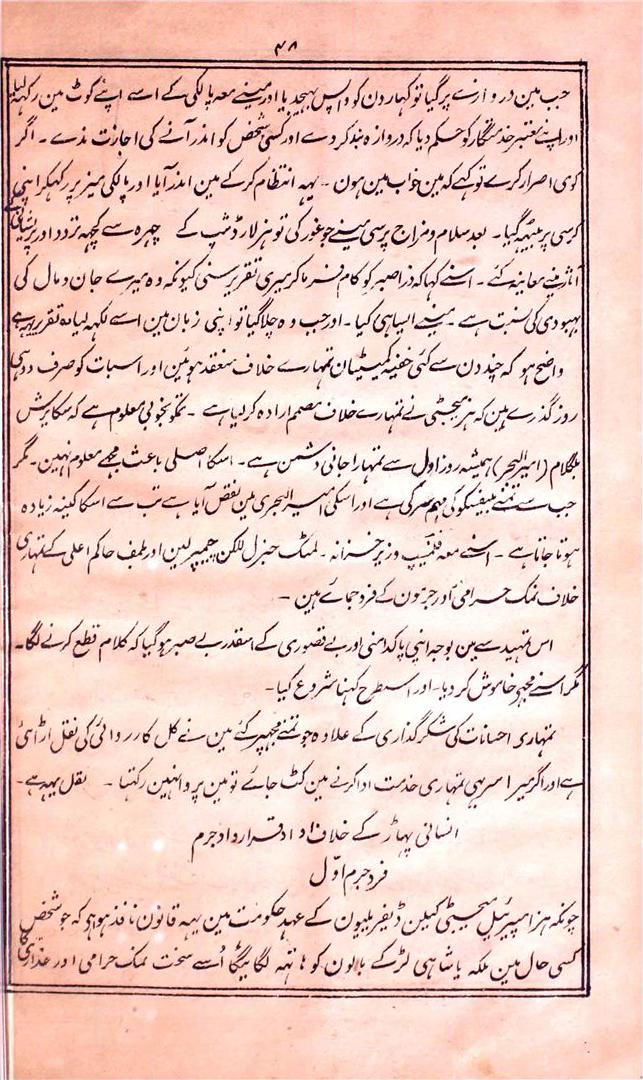 ۴۸
جب مین دروازے پر گیا تو کہار دن کو واپس بہیجدیا اور مینے معہ پالکی کے اسے اپنے کوٹ مین رکہہ لیا
اور اپنے معتبر خدمتگار کو حکم دیا کہ دروازہ بند کر دے اور کسی شخص کو اندر آنے کی اجازت ندے ۔ اگر
کوئی اصرار کرے تو کہے کہ مین خواب مین ہون ۔ یہہ انتظام کر کے مین اندر آیا اور پالکی میز پر رکہکر اپنی
کرسی پر بیٹہہ گیا ۔ بعد سلام و مزاج پرسی مینے جو غور کی تو ہز لارڈ شپ کے چہرہ سے کچہہ تردد اور پریشانی کے
آثار مینے معاینہ کئے ۔ اسنے کہا کہ ذرا صبر کو کام فرما کر میری تقریر سنی کیونکہ وہ میرے جان و مال کی
بہبودی کی نسبت ہے ۔ مینے ایسا ہی کیا ۔ اور جب وہ چلا گیا تو اپنی زبان مین اسے لکہہ لیا وہ تقریر یہہ ہے
واضح ہو کہ چند دن سے کئی خفیہ کمیٹیان تمہارے خلاف منعقد ہوئین اور اسبات کو صرف دو ہی
روز گذرے ہین کہ ہز میجسٹی نے تمہارے خلاف مصمم ارادہ کر لیا ہے ۔ تمکو بخوبی معلوم ہے کہ سکائرش
بلگلام (امیر البحر) ہمیشہ روز اول سے تمہارا جانی دشمن ہے ۔ اسکا اصلی باعث مجہے معلوم نہین ۔ مگر
جب سے تمنے بلیفسکو کی مہم سر کی ہے اور اسکی امیر البحری مین نقص آیا ہے تب سے اسکا کینہ زیادہ
ہوتا جاتا ہے ۔ اسنے معہ فلمنیپ وزیر خزانہ ۔ لمٹاک جنرل لالکن چیمبرلین اور بلمف حاکم اعلی کے تمہاری
خلاف نمک حرامی اور جرمون کے فرد جمائے ہین ۔
اس تمہید سے مین بوجہ اپنی پاکدامنی اور بے قصوری کے اسقدر بے صبر ہو گیا کہ کلام قطع کرنے لگا ۔
مگر اسنے مجہکو خاموش کر دیا ۔ اور اسطرح کہنا شروع کیا ۔
تمہاری احسانات کی شکر گذاری کے علاوہ جو تمنے مجہپر کئے مین نے کل کارروائی کی نقل اڑائی
ہے اور اگر میرا سر بہی تمہاری خدمت ادا کرنے مین کٹ جائے تو مین پروا نہین رکہتا ۔ نقل یہہ ہے ۔
انسانی پہاڑ کے خلاف قرارداد جرم
فرد جرم اوّل
چونکہ ہز امپیرئیل میجسٹی کیلین ڈیفر پلیون کے عہد حکومت مین یہہ قانون نافذ ہوا ہو کہ جو شخص
کسی حال مین ملکہ یا شاہی لڑکے بالون کو ہاتہہ لگائیگا اُسے سخت نمک حرامی اور غداری کا